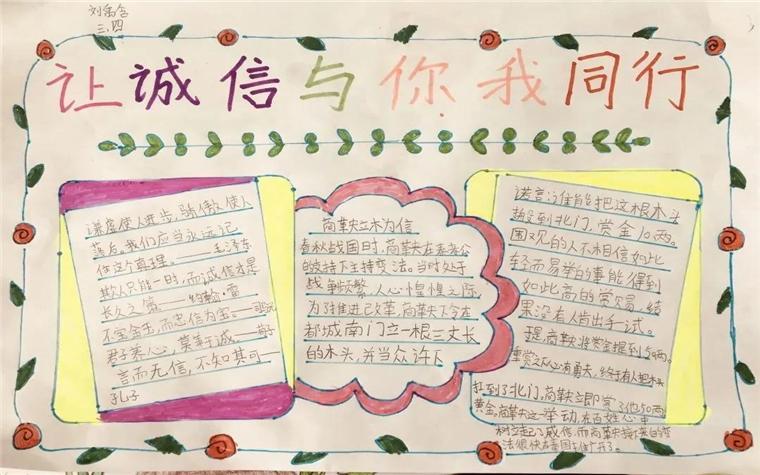 刘禹含
三.四
让诚信与你我同行
谦虚使人进步，骄傲使人
落后。我们应当永远记
住这个真理。——毛泽东
欺人只能一时，而诚信才是
长久之策——约翰·雷
不宝金玉，而忠信为宝。
君子养心，莫善于诚。——荀子
言而无信，不知其可——
孔子
商鞅立木为信
春秋战国时，商鞅在秦孝公
的支持下主持变法。当时处于
战争频繁、人心惶惶之际，
为了推进改革，商鞅下令在
都城南门立一根三丈长
的木头，并当众许下
诺言：谁能把这根木头
搬到北门，赏金10两。
围观的人不相信如此
轻而易举的事能得到
如此高的赏赐，结
果没有人肯出手一试。
提，商鞅将赏金提到50两。
重赏之下必有勇夫，终于有人把木头
扛到了北门。商鞅立即赏了他50两
黄金。商鞅这一举动，在百姓心中
树立起了威信，而商鞅接下来的变
法很快在秦国推广开了。